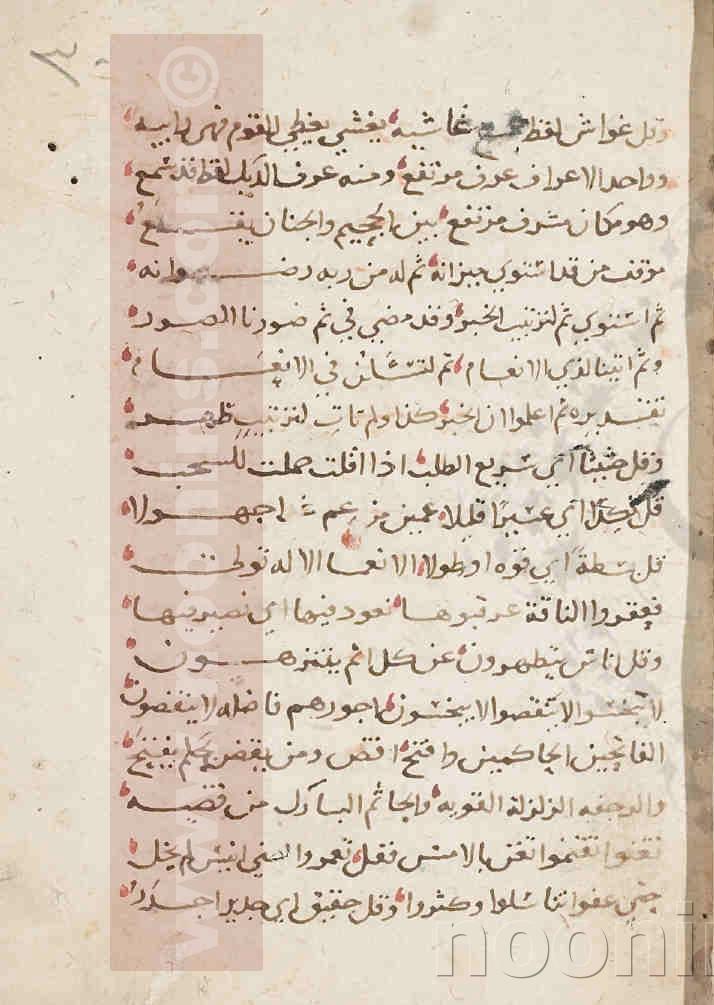 وقل غواش لفظ جمع غاشيه يغشي يغطي القوم فهي
وواحد الاعراف عرف مرتفع ومنه عرف الديك لفظ قد سمع
وهو مكان مشرف مرتفع بين الجحيم والجنان يقع
موقف من قد استوي ميزانه ثم له من ربه رضوانه
ثم استوي ثم لترتيب الخبر وقد مضي في ثم صورنا الصور
وثم اتينا لذي الانعام ثم في الانعام
تقديره ثم اعلموا ان الخبر كذا ولم تات لترتيب ظهر
وقل حثيثا اي سريع الطلب اذا اقلت حملت للسحب
قل نكدا اي عسيرا قليلا عمين من عم اجهولا
قل بسطة اي قوه او طولا الا
فعقروا الناقة عرقبوها نعود فيها اي نصير فيها
وقل اناس يتطهرون عن كل اثم يتنزهون
لا تبخسوا لا تنقصوا لا يبخسون اجورهم لا ينقصون
الفاتحين الحاكمين وافتح اقض ومن يقض بحكم يفتح
والرجفه الزلزلة القويه والجاثم البارك من
بالامس فقل تعمروا لم يخل
حتي عفوا تناسلوا وكثروا وقل حقيق اي جدير اجدر
© www.noonins.com
noonin